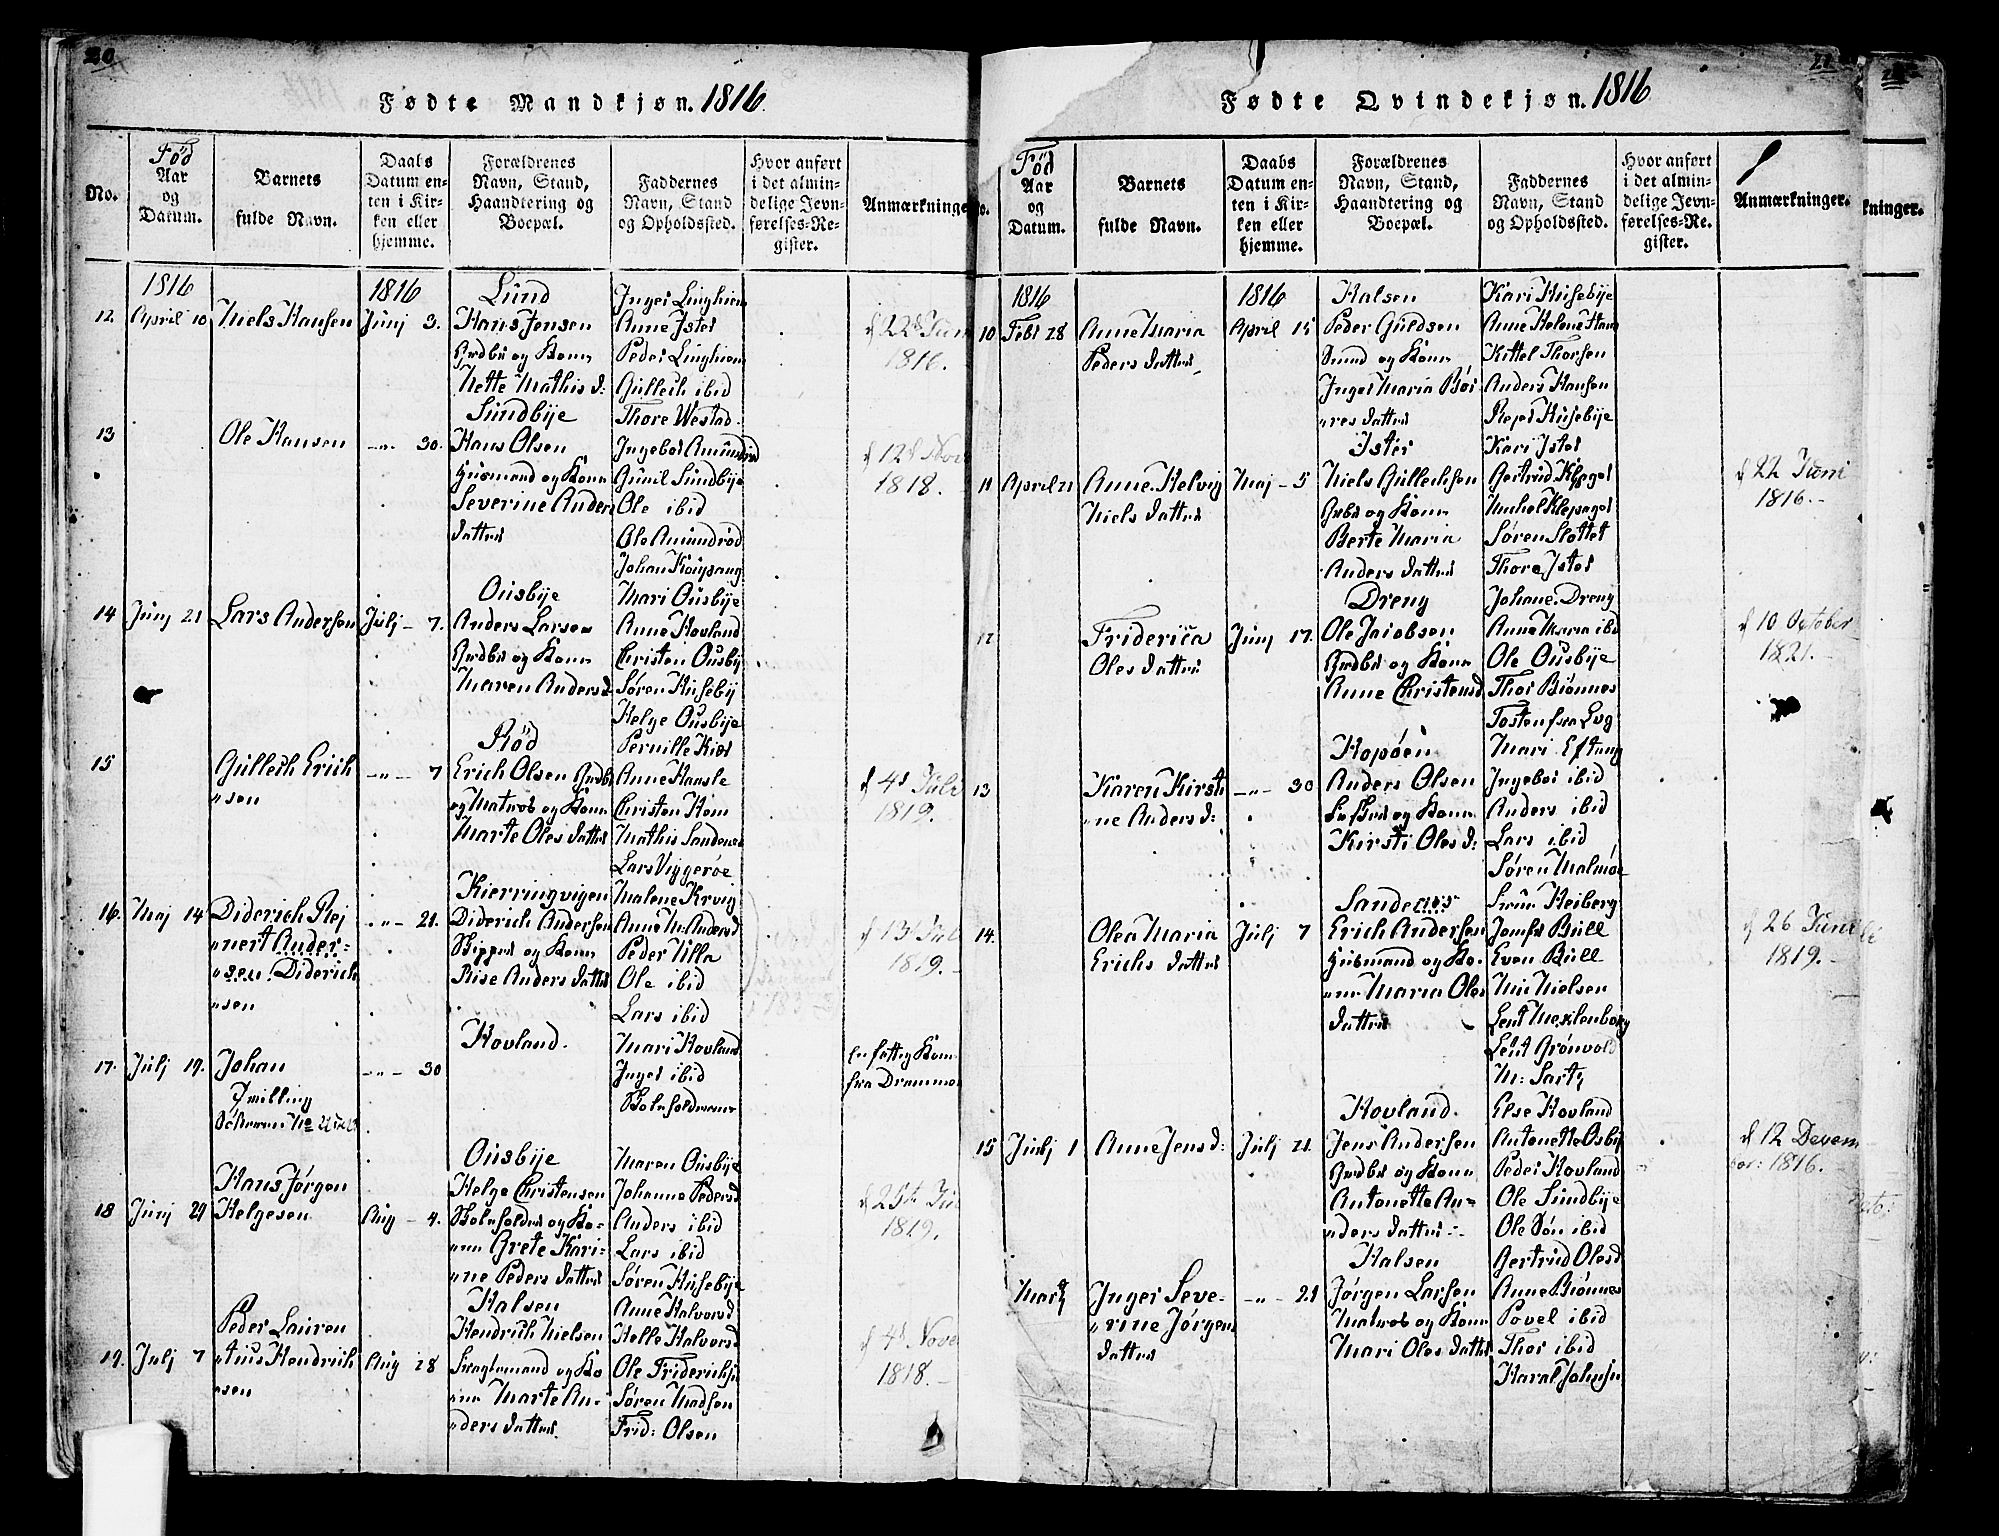 20
Fødte Mandkjøn. 1816.
No.
Fød
Aar
og
Datum.
Barnets
fulde Navn.
Daabs
Datum en-
ten i Kir-
ken eller
hjemme.
Forældrenes
Navn, Stand,
Haandtering og
Boepæl.
Faddernes
Navn, Stand
og Opholdssted.
Hvor anført
i det almin-
delige Jevn-
førelses-Re-
gister.
Anmærkninge
1816
12 April 10
Niels Hansen
1816
Junj 3.
Lund
Hans Jensen
Grdbr og Kone
Nette Mathis d:
Inger Linghiem
Anne Ister
Peder Linghiem
Gullech ibid
Thore Westad
d 22d Juni
1816.
13
Ole Hansen
-"- 30.
Sundbÿe
Hans Olsen
Huusmand og Kone
Severine Anders
datter
Ingebor Amundrød
Gunil Sundbÿe
Ole ibid
Ole Amundrød
Johan
d 12d Nov
1818.
14 Junj 21
Lars Andersen
Julj - 7.
Ousbÿe
Anders Larsen
Grdbr og Kone
Maren Andersd
Mari Ousbÿe
Anne Hovland
Christen Ousbÿ
Søren Huusebÿ
Helge Ousbÿe
15
Gullech Erich
"sen
-"- 7
Rød
Erich Olsen Grdbr
og Matros og Kone
Marte Oles datter
Pernille Kiær
Anne Hansle
Christen Hem
Mathis Sandenes
Lars Viggerøe
d 4d Juli
1819.
16. Maj 14
Diderich Rej
"nert Ander=
"sen. Diderich
"sen
-"- 21.
Kierringvigen
Diderich Andersen
Skipper og Kone
Rise Anders datter
Malene Krvig
Anne M: Andersd
Peder Ulla
Ole ibid
Lars ibid
d 13d Jul
1819.-
17. Julj 19.
Johan
Tvilling
-"- 30
Hovland.
Mari Hovland
Inger ibid
en fattig Kone
fra Drammen
18 Junj 29
Hans Jørgen
Helgesen
Aug - 4.
Ousbÿe
Helge Christensen
og Ko-
"ne Grete Kari-
"ne Peders datter
Maren Ousbÿe
Johanne Pedersd
Anders ibid
Lars ibid
Søren Husebÿe
d 25de Jul
1819.
19. Julj 7
Peder Lauren
"tius Hendrich
"sen
Aug 28
Halsen
Hendrich Nielsen
og Ko
"ne Marte An-
"ders datter
Anne Halvorsd
Helle Halvorsd
Ole Friderichsen
Søren Madsen
Frid: Olsen
d 4d Nove
1818.-
21
Fødte Qvindekjøn. 1816
No.
Fød
Aar
og
Datum.
Barnets
fulde Navn.
Daabs
Datum en-
ten i Kir-
ken eller
hjemme.
Forældrenes
Navn, Stand,
Haandtering og
Boepæl.
Faddernes
Navn, Stand
og Opholdssted.
Hvor anført
i det almin-
delige Jevn-
førelses-Re-
gister.
Anmærkninger.
kninger.
1816
10 Febr 28
Anne Maria
Peders datter
1816
April 15
Halsen
Peder Guldsen
Sund og Kone
Inger Maria Bør
"res datter
Kari Husebÿe
Anne Helene Hans
Kittel Thorsen
Anders Hansen
Husebÿe
11 April 21
Anne Helvig
Niels datter
Maj - 5
Ister
Niels Gullechsen
Grdbr og Kone
Berte Maria
Anders datter
Kari Ister
Gertrud Klepager
Michel Klepager
Søren Slottet
Thore Ister
d 22 Juni
1816.-
12
Friderica
Oles datter
Junj 17.
Dreng
Ole Jacobsen
Grdbr og Kone
Anne Christensd
Johane Dreng
Anne Maria ibid
Ole Ousbÿe
Thor Biønnes
Tosten fra Eeg
d 10 October
1821.-
13
Karen Kirsti
"ne Anders d:
-"- 30
Hopøen
Anders Olsen
og Kone
Kirsti Oles d:
Mari Eftang
Ingebor ibid
Anders ibid
Lars ibid
Søren Malmøe
14.
Olea Maria
Erichs datter
Julj 7
Sandenes
Erich Andersen
Huusmand og Ko-
"ne Maria Oles
datter
Frue Heiberg
Jomfr Bull
Even Bull
Nic Nielsen
Leut Meklenborg
Leut Grønvold
M: Sartz
d 26 Juni
1819.-
15 Julj 1
Anne Jens d:
Julj 21.
Hovland.
Jens Andersen
Grdbr og Kone
Antonette An-
"ders datter -
Else Hovland
Antonette Osbÿ
Peder Hovland
Ole Sundbÿe
Ole Søn ibid
d 12 Decem
ber: 1816.-
Martz
Inger Seve-
"rine Jørgens
datter
-"- 21
Halsen
Jørgen Larsen
Matros og Kone
Mari Oles datter
Gertrud Olesd
Anne Biønnes
Povel ibid
Thor ibid
Haral Johnsen